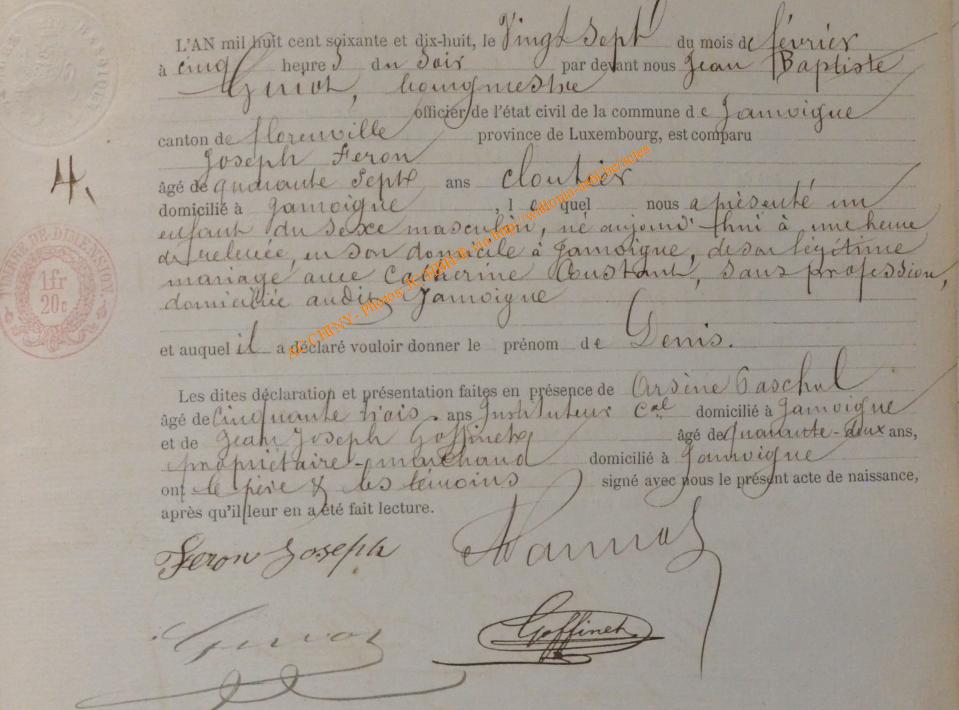 L'AN mil huit cent soixante et dix-huit, le Vingt Sept du mois de février
à cinq heures du Soir par devant nous Jean Baptiste
bourgmestre
officier de l'état civil de la commune de Jamoigne
canton de florenville province de Luxembourg, est comparu
Joseph Feron
âgé de quarante Sept ans cloutier
4.
domicilié à Jamoigne, lequel nous a présenté un
enfant du sexe masculin, né aujourd'hui à une heure
de relevée, en son domicile à Jamoigne, de son légitime
mariage avec Catherine Constant, sans profession,
domiciliée audit Jamoigne
TIMBRE DE DIMENSION
1fr
20c
et auquel il a déclaré vouloir donner le prénom de Denis.
Les dites déclaration et présentation faites en présence de Arsène Paschal
âgé de Cinquante trois ans Instituteur cal domicilié à Jamoigne
et de Jean Joseph Goffinet âgé de quarante-deux ans,
propriétaire-marchand domicilié à Jamoigne
ont le père & les témoins signé avec nous le présent acte de naissance,
après qu'il leur en a été fait lecture.
Feron Joseph
Goffinet